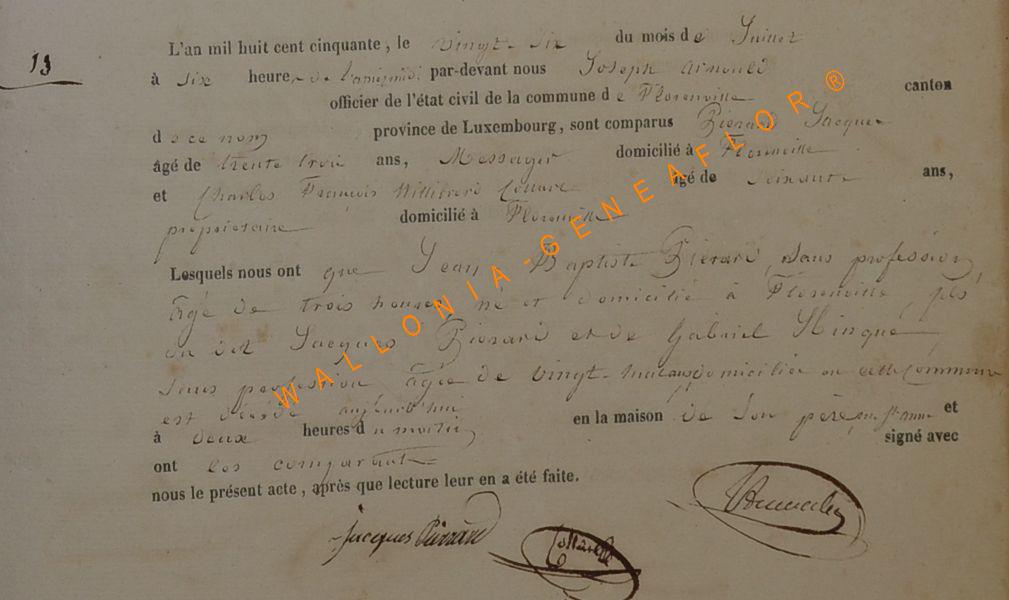 13
L'an mil huit cent cinquante, le vingt-six du mois de Juillet
à six heures de l'aprèsmidi par-devant nous Joseph Arnould
officier de l'état civil de la commune de Florenville canton
de ce nom province de Luxembourg, sont comparus Piérard Jacques
âgé de trente trois ans, Messager domicilié à Florenville
et Charles François Willibrord âgé de soixante ans,
propriétaire domicilié à Florenville
Lesquels nous ont que Jean Baptiste Piérard, sans profession,
âgé de trois heures, né et domicilié à Florenville, fils
du dit Jacques Piérard et de Gabriel
sans profession âgée de vingt-huit ans domiciliée en cette Commune
est décédé aujourd'hui
à deux heures du matin en la maison de son père et
ont les comparants signé avec
nous le présent acte, après que lecture leur en a été faite.
Jacques Piérard
WALLONIA-GENEAFLOR®